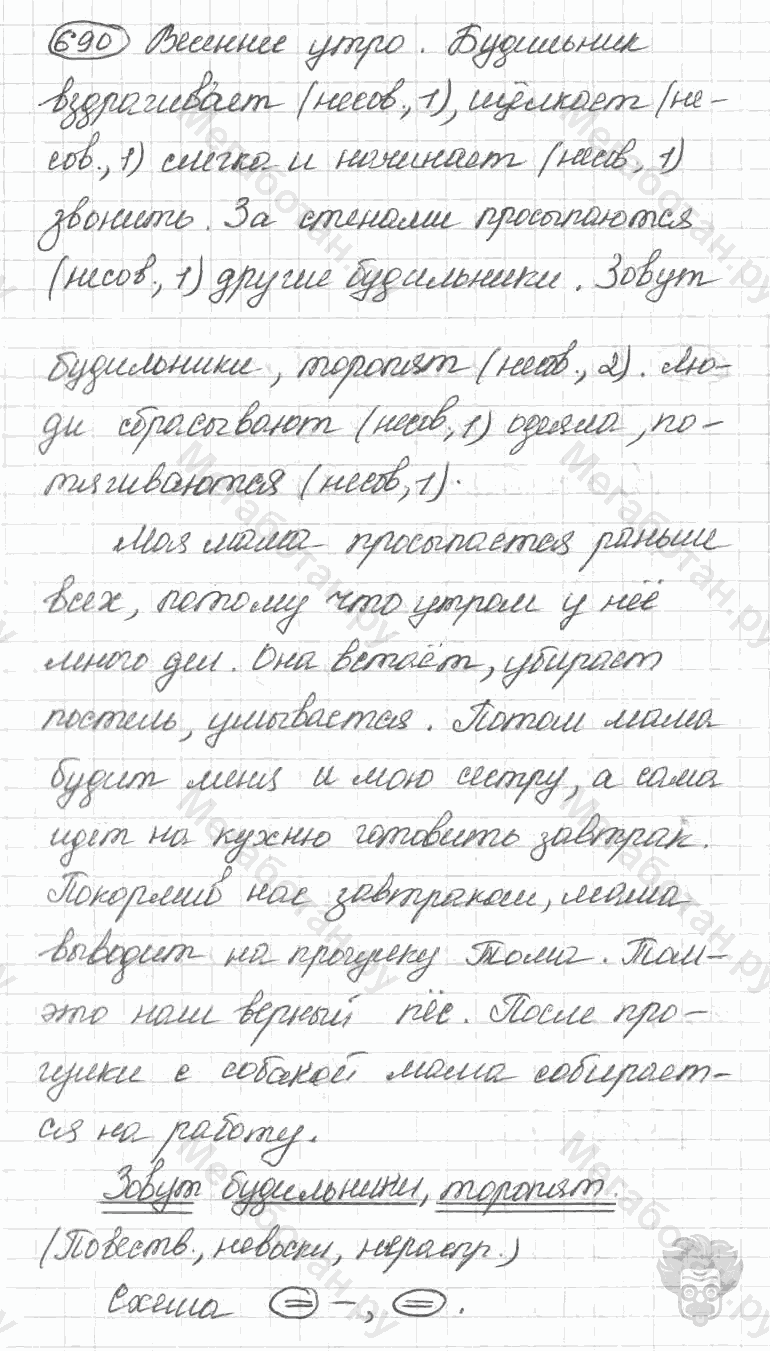 690 Весеннее утро. Будильник
вздрагивает (несов., 1), щёлкает (не-
сов., 1) слегка и начинает (несов, 1)
звонить. За стенами просыпаются
(несов., 1) другие будильники. Зовут
будильники, торопят (несов., 2). Лю-
ди сбрасывают (несов, 1) одеяла, по-
тягиваются (несов, 1).
Моя мама просыпается раньше
всех, потому что утром у неё
много дел. Она встаёт, убирает
постель, умывается. Потом мама
будит меня и мою сестру, а сама
идет на кухню готовить завтрак.
Покормив нас завтраком, мама
выводит на прогулку Тома. Том-
это наш верный пёс. После про-
гулки с собакой мама собирает-
ся на работу.
Зовут будильники, торопят.
(Повеств., невоскл, нераспр.)
Схема (=) –, (=).
Мегаботан.ру